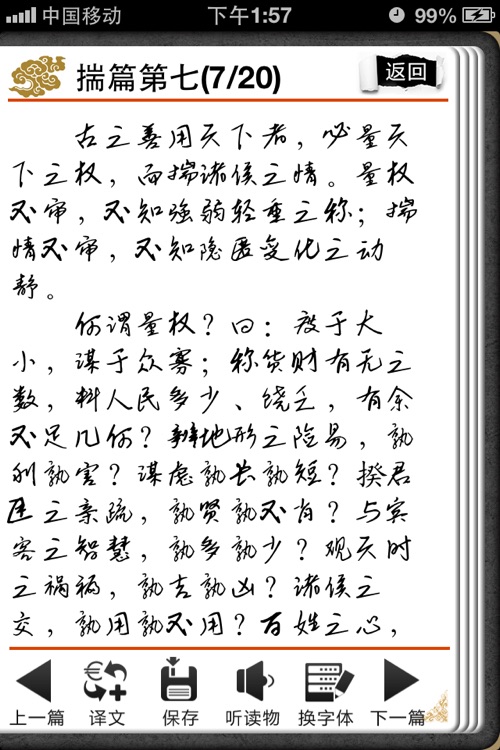 中国移动 下午1:57 99%
揣篇第七(7/20) 返回
古之善用天下者，必量天
下之权，而揣诸侯之情。量权
不审，不知强弱轻重之称；揣
情不审，不知隐匿变化之动
静。
何谓量权？曰：度于大
小，谋于众寡；称货财有无之
数，料人民多少、饶乏，有余
不足几何？辨地形之险易，孰
利孰害？谋虑孰长孰短？揆君
臣之亲疏，孰贤孰不肖？与宾
客之智慧，孰多孰少？观天时
之祸福，孰吉孰凶？诸侯之
交，孰用孰不用？百姓之心，
上一篇 译文 保存 听读物 换字体 下一篇